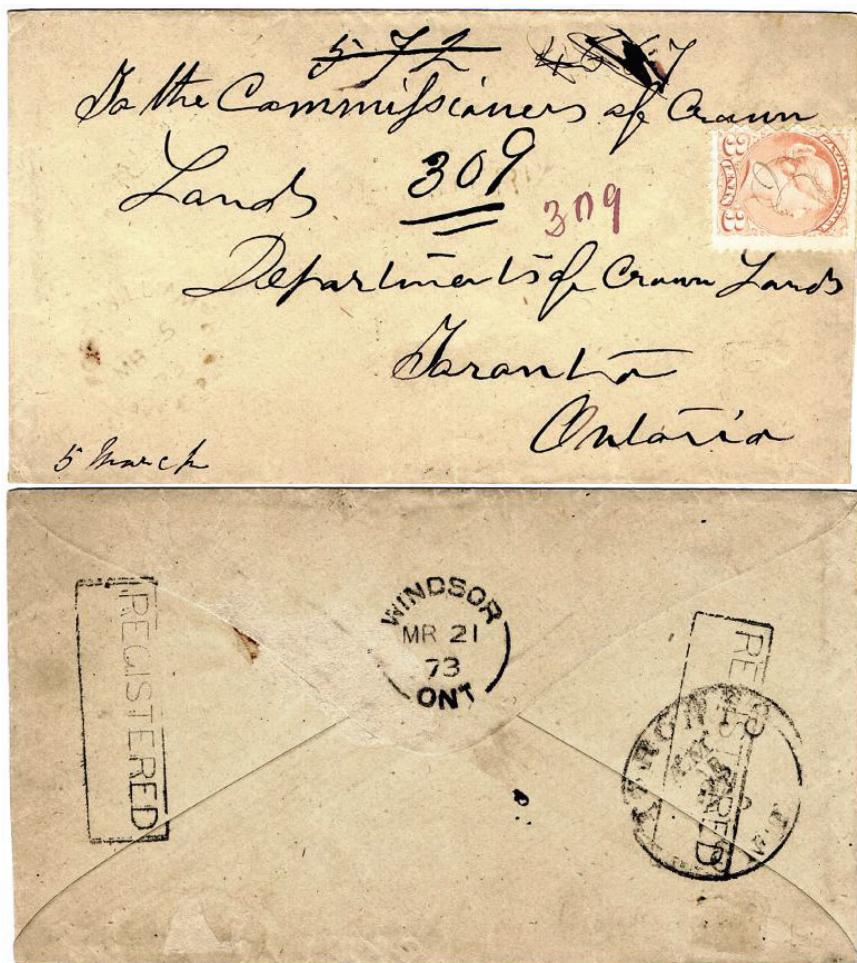 572
To the Commissioners of Crown
Lands 309
309
Departments of Crown Lands
Toronto
Ontario
5 March
3 3
MR 5
REGISTERED
WINDSOR
MR 21
73
ONT
REGISTERED